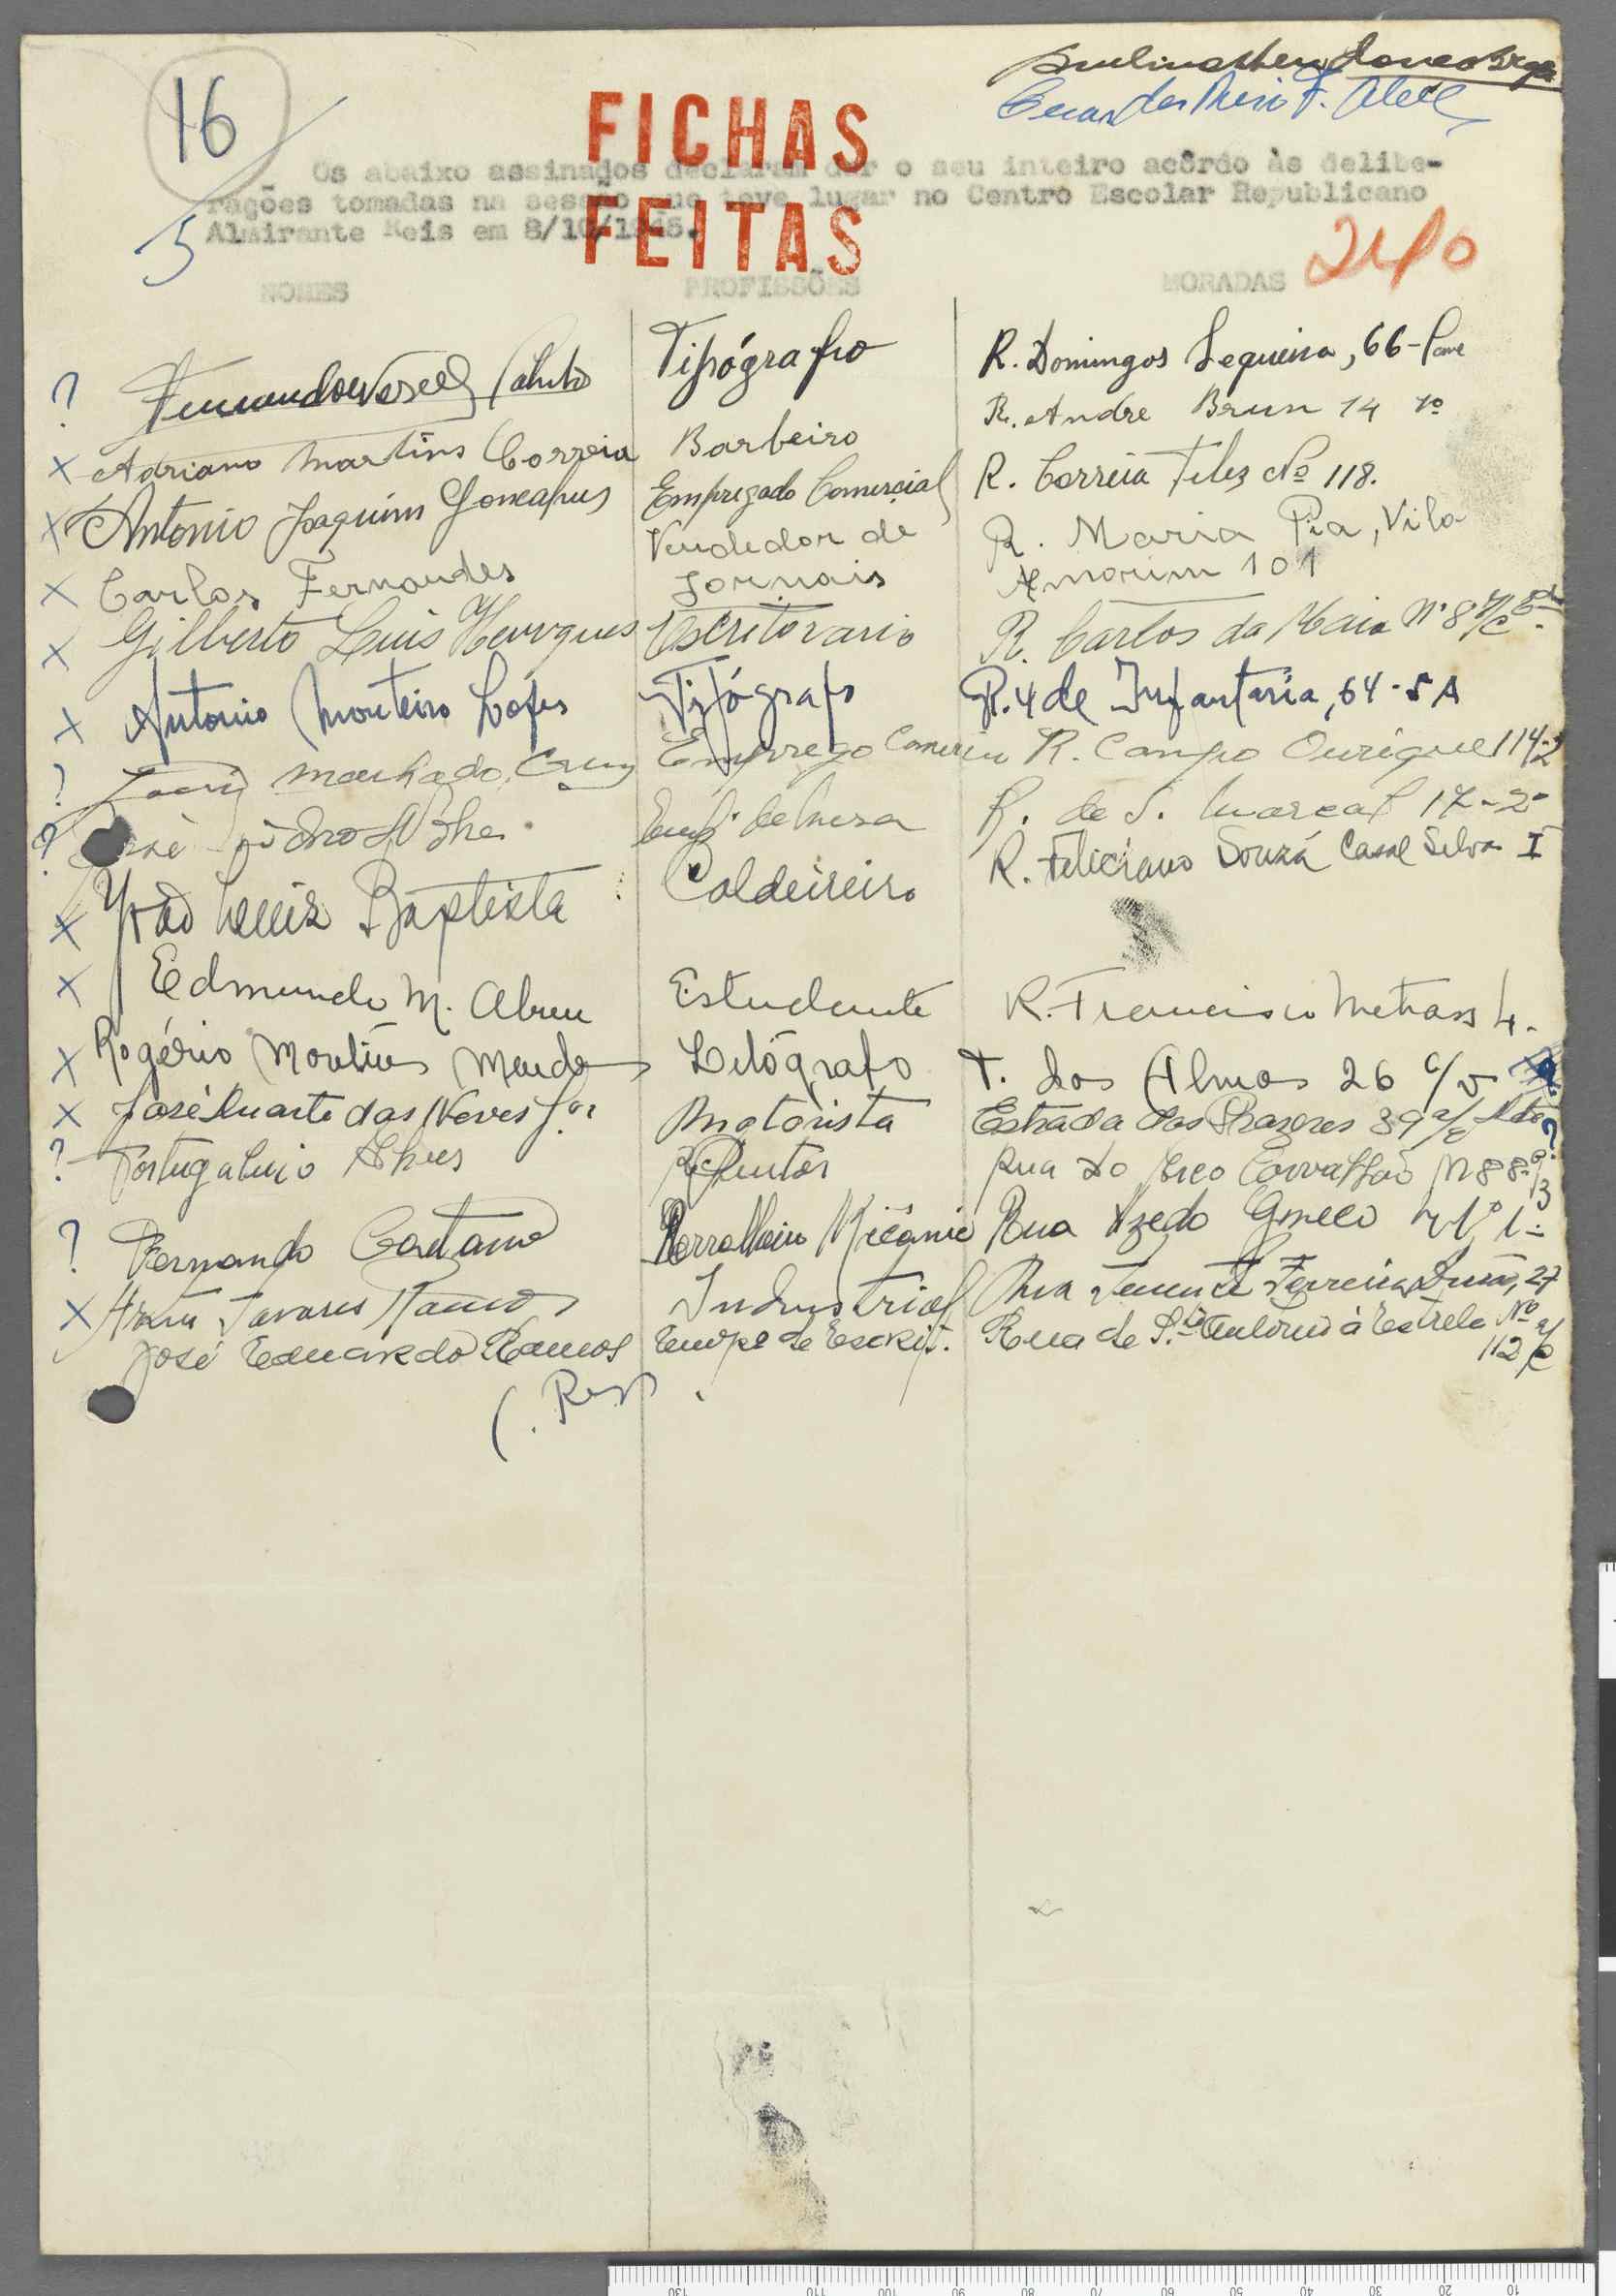 16
FICHAS
FEITAS
Os abaixo assinados declaram dar o seu inteiro acôrdo às delibe-
rações tomadas na sessão que teve lugar no Centro Escolar Republicano
Almirante Reis em 8/10/1945.
5
240
NOMES PROFISSÕES MORADAS
? Tipógrafo R. Domingos Sequeira, 66-
x Adriano Martins Correia Barbeiro R. Andre Brun 14 1º
x Antonio Joaquim Gonçalves Empregado Comercial R. Correia Teles Nº 118.
x Carlos Fernandes Vendedor de Jornais R. Maria Pia, Vila Amorim 101
x Gilberto Luis Henriques Escritorario R. Carlos da Maia Nº 8 r/c
x Antonio Monteiro Lopes Tipógrafo R. 4 de Infantaria, 64-5A
? Machado Cruz Emprego R. Campo Ourique 114-2
? José de Mesa R. de S. Marçal 17-2º
x João Luiz Baptista Caldeireiro R. Feliciano Souza Casal Silva I
x Edmundo M. Abreu Estudante R. Francisco Metrass 4.
x Rogério Martins Mendes Litógrafo T. dos Almas 26 c/v
x José Duarte das Neves Jor Motorista Estrada dos Prazeres 39 r/c
? Alves Pintor Rua do Arco Carvalhão Nº 88
? Fernando Caetano Serralheiro Micânic Rua Azedo Gneco
x Tavares Ramos Industrial Rua Tenente Ferreira Durão, 27
José Eduardo Ramos Empº de Escrit. Rua de S.to António à Estrela Nº 112 r/c